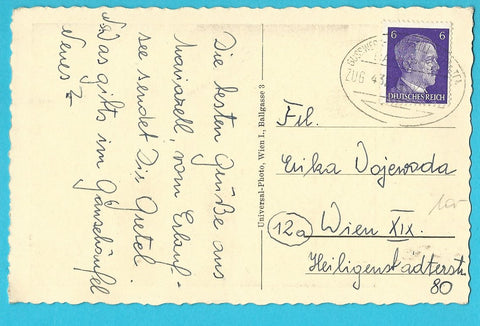 Die besten Grüße aus
Mariazell, vom Erlauf-
see sendet Dir Gretel
Was gibts im Gänsehäufel
Neues?
Universal-Photo, Wien I., Ballgasse 3
6 6
DEUTSCHES REICH
ZUG 43
Frl.
Erika Wojewoda
12a Wien XIX.
Heiligenstädterstr
80